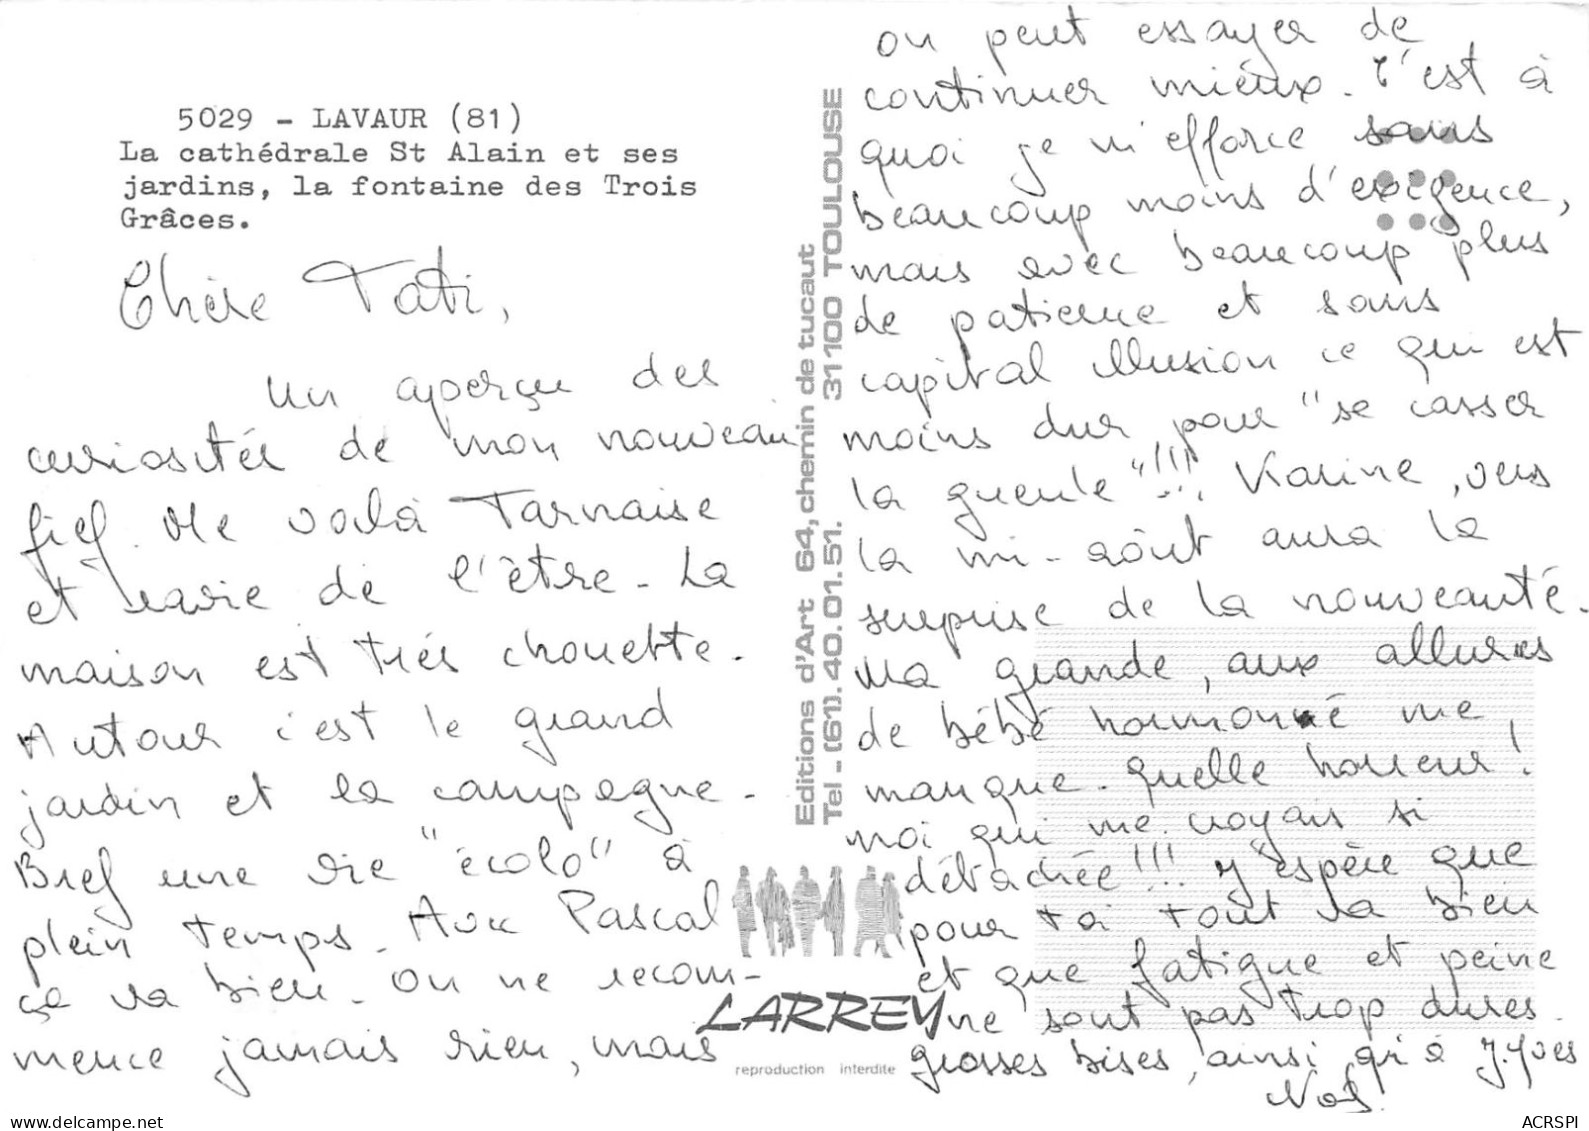 5029 - LAVAUR (81)
La cathédrale St Alain et ses
jardins, la fontaine des Trois
Grâces.
Chère Tati,
Un aperçu des
curiosités de mon nouveau
fief. Me voilà Tarnaise
et ravie de l'être - La
maison est très chouette.
Autour c'est le grand
jardin et la campagne.
Bref une vie "écolo" à
plein temps. Avec Pascal
ça va bien. On ne recom-
mence jamais rien, mais
on peut essayer de
continuer mieux. C'est à
quoi je m'efforce sans
beaucoup moins d'exigence,
mais avec beaucoup plus
de patience et sans
capital illusion ce qui est
moins dur pour "se casser
la gueule"!!! Karine, vers
la mi-août aura la
surprise de la nouveauté.
Ma grande, aux allures
de bébé me
manque. quelle horreur!
moi qui me croyais si
détachée!!! J'espère que
pour toi tout va bien
et que fatigue et peine
ne sont pas trop dures.
grosses bises, ainsi qu'à J.Yves
Editions d'Art 64, chemin de tucaut 31100 TOULOUSE
Tel - (61). 40. 01. 51.
LARREY
reproduction interdite
ACRSPI